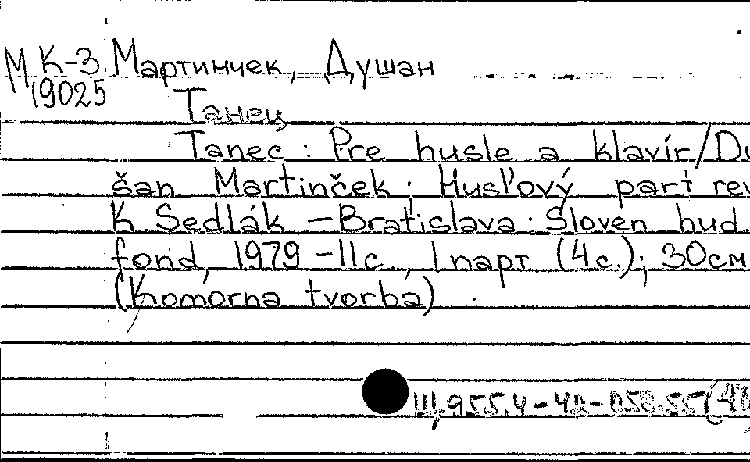 МК-3 Мартинчек, Душан
19025
Танец
Tanec : Pre husle a klavír/Du
šan Martinček; Husľový part rev
K Sedlák – Bratislava: Sloven hud
fond, 1979 – 11с., 1 парт (4с.); 30см
(Komorna tvorba)
Щ955.4-4